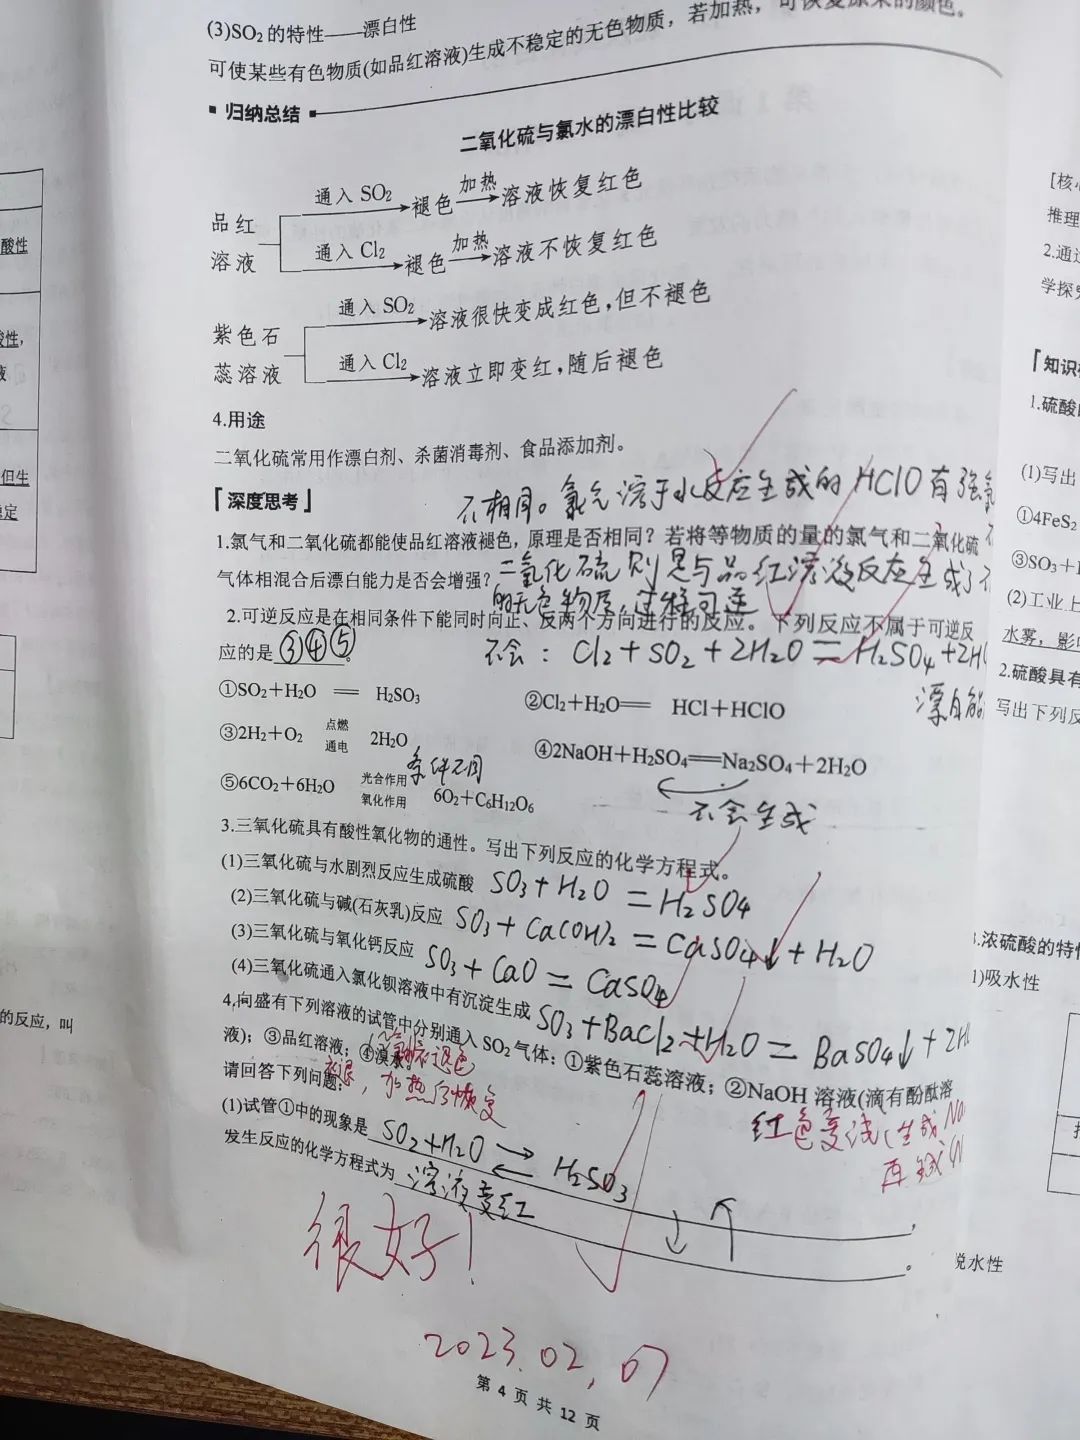 (3)SO₂的特性——漂白性
可使某些有色物质(如品红溶液)生成不稳定的无色物质，若加热，可恢复原来的颜色。
归纳总结
二氧化硫与氯水的漂白性比较
品红溶液
通入 SO₂ 褪色 加热 溶液恢复红色
通入 Cl₂ 褪色 加热 溶液不恢复红色
紫色石蕊溶液
通入 SO₂ 溶液很快变成红色，但不褪色
通入 Cl₂ 溶液立即变红，随后褪色
4.用途
二氧化硫常用作漂白剂、杀菌消毒剂、食品添加剂。
「深度思考」
不相同。氯气溶于水反应生成的HClO有强氧
1.氯气和二氧化硫都能使品红溶液褪色，原理是否相同？若将等物质的量的氯气和二氧化硫
气体相混合后漂白能力是否会增强？
二氧化硫则是与品红溶液反应生成了不
的无色物质，过程可逆
2.可逆反应是在相同条件下能同时向正、反两个方向进行的反应。下列反应不属于可逆反
应的是③④⑤。
不会：Cl₂+SO₂+2H₂O=H₂SO₄+2HC
漂白能
①SO₂+H₂O ══ H₂SO₃ ②Cl₂+H₂O══ HCl+HClO
③2H₂+O₂ 点燃 通电 2H₂O ④2NaOH+H₂SO₄══Na₂SO₄+2H₂O
⑤6CO₂+6H₂O 光合作用 氧化作用 6O₂+C₆H₁₂O₆
条件不同
不会生成
3.三氧化硫具有酸性氧化物的通性。写出下列反应的化学方程式。
(1)三氧化硫与水剧烈反应生成硫酸 SO₃+H₂O=H₂SO₄
(2)三氧化硫与碱(石灰乳)反应 SO₃+Ca(OH)₂=CaSO₄↓+H₂O
(3)三氧化硫与氧化钙反应 SO₃+CaO=CaSO₄
(4)三氧化硫通入氯化钡溶液中有沉淀生成 SO₃+BaCl₂+H₂O=BaSO₄↓+2H
4.向盛有下列溶液的试管中分别通入 SO₂ 气体：①紫色石蕊溶液；②NaOH 溶液(滴有酚酞溶
液)；③品红溶液；④溴水。
褪色
，加热后恢复
红色变浅(生成Na
请回答下列问题：
(1)试管①中的现象是 SO₂+H₂O ⇌ H₂SO₃ ，
发生反应的化学方程式为 溶液变红 。
↓ ↑
很好！
2023.02.07
第 4 页 共 12 页
酸性
性，
液
但生
稳定
的反应，叫
[核心
推理
2.通过
学探究
「知识
1.硫酸
(1)写出
①4FeS₂
③SO₃+
(2)工业上
水雾，影
2.硫酸具有
写出下列反
3.浓硫酸的特性
1)吸水性
脱水性